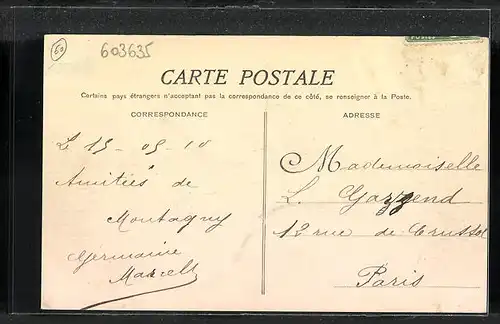 60
603635
CARTE POSTALE
Certains pays étrangers n'acceptant pas la correspondance de ce côté, se renseigner à la Poste.
CORRESPONDANCE
ADRESSE
Le 15-05-10
Amitiés de
Montagny
Germaine
Marcell
Mademoiselle
L. Gazzend
12 rue de Crussol
Paris